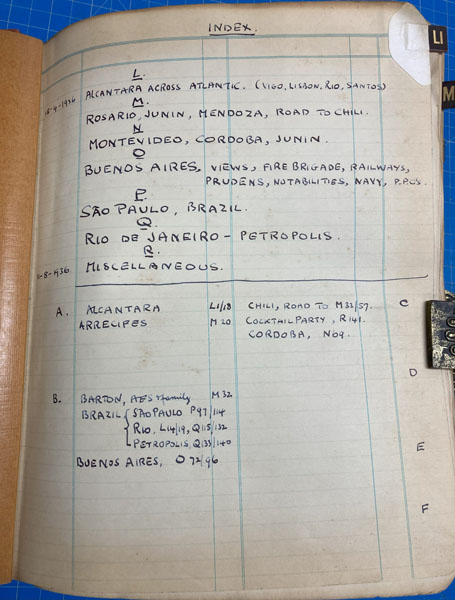 INDEX.
LI
M
L.
15-4-1936 ALCANTARA ACROSS ATLANTIC. (VIGO, LISBON, RIO, SANTOS)
M.
ROSARIO, JUNIN, MENDOZA, ROAD TO CHILI.
N
MONTEVIDEO, CORDOBA, JUNIN.
O
BUENOS AIRES, VIEWS, FIRE BRIGADE, RAILWAYS,
PRUDENS, NOTABILITIES, NAVY, P.P.C's.
P.
SÃO PAULO, BRAZIL.
Q.
RIO DE JANEIRO - PETROPOLIS.
R.
-8-1936 MISCELLANEOUS.
A. ALCANTARA L1/18 CHILI, ROAD TO M32/57. C
ARRECIPES M20 COCKTAIL PARTY, R141.
CORDOBA, N09.
D
B. BARTON, AES & family M32
BRAZIL { SÃO PAULO P97/114
RIO, L14/19, Q115/132
PETROPOLIS, Q133/140
E
BUENOS AIRES, O 72/96
F